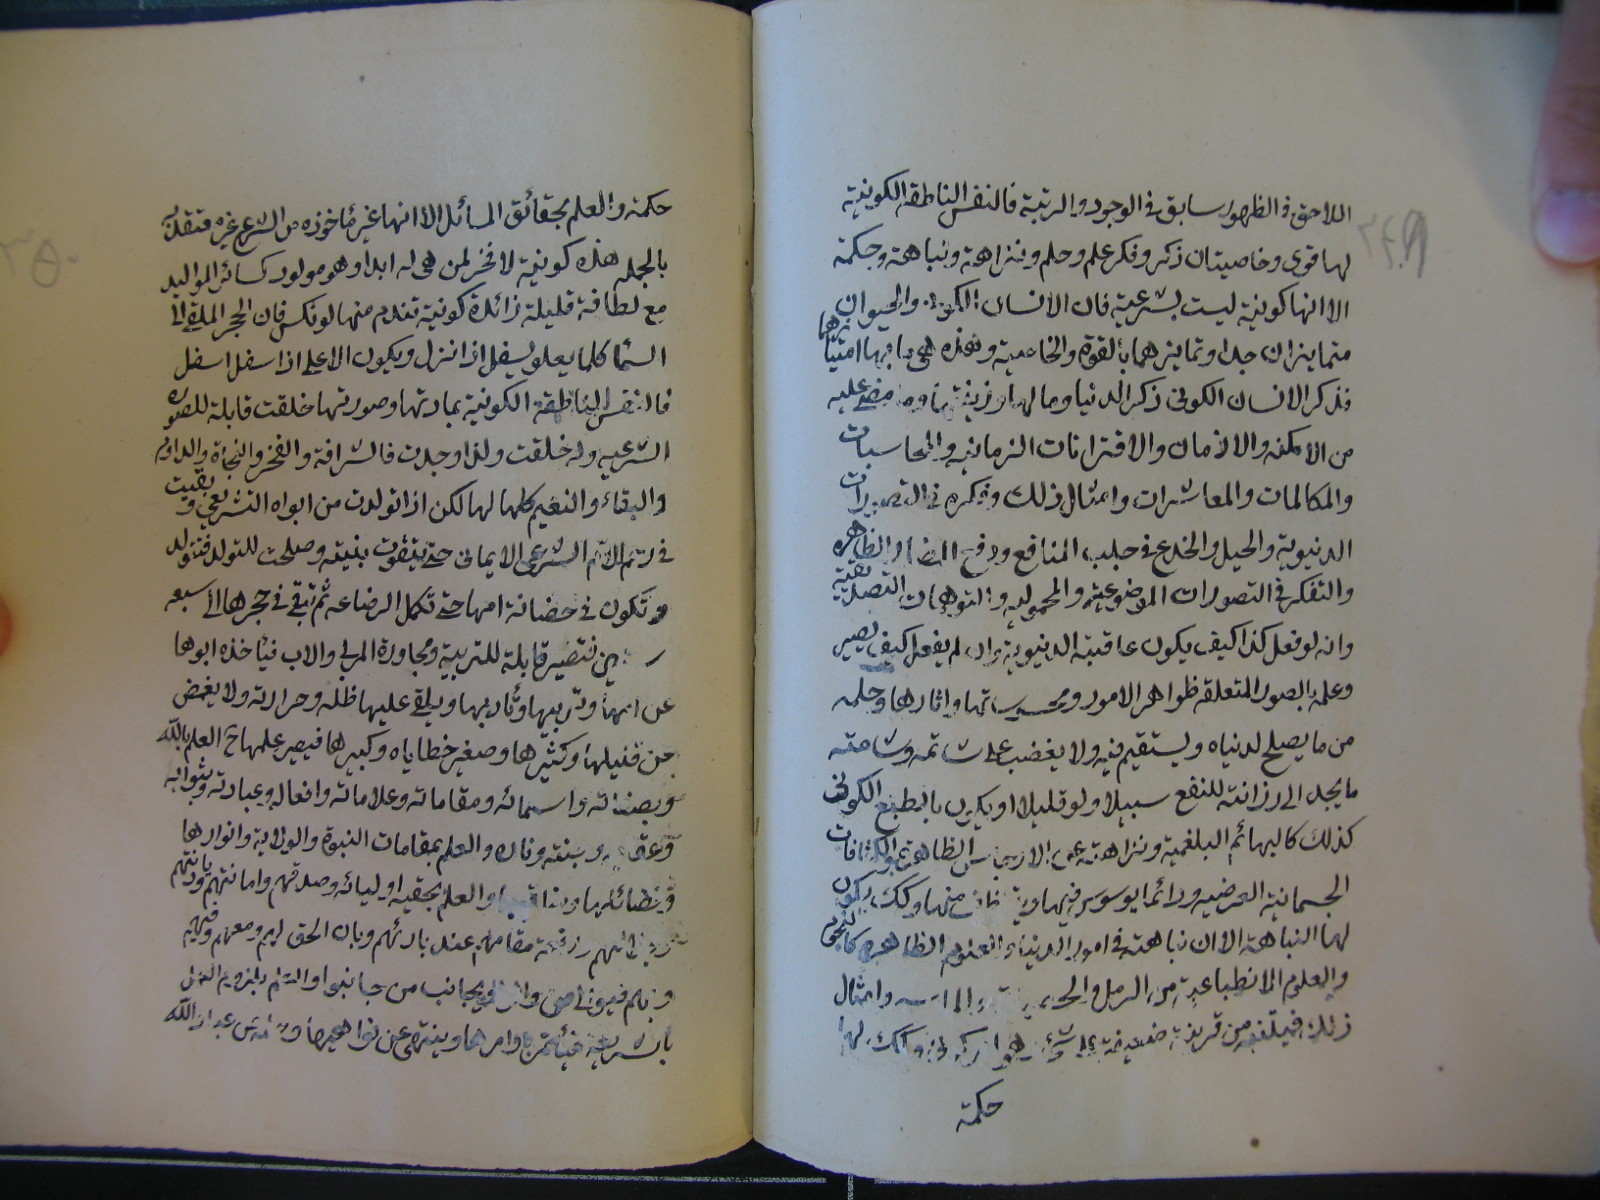 اللاحق في الظهور سابق في الوجود والرتبة فالنفس الناطقة الكونية
لها قوى وخاصيتان ذكر وفكر علم وحلم ونزاهة ونباهة وحكمة
الا انها كونية ليست بشرعية فان الانسان الكونى والحيوان
متمايزان جدا وتمايزهما بالقوة والخاصية وهذه هي ما بها امتيازهما
فذكر الانسان الكونى ذكر الدنيا وما لها وزينتها وما مضى عليه
من الامكنه والازمان والاقترانات الزمانيه والمحاسبات
والمكالمات والمعاشرات وامثال ذلك وفكره في التصورات
الدنيوية والحيل والخدع في جلب المنافع ودفع المضار الظاهره
والتفكر في التصورات الموضوعية والمحموليه والتوهمات التصديقية
وانه لو فعل كذا كيف يكون عاقبته الدنيوية وان لم يفعل كيف يصير
وعلمه بالصور المتعلقه ظواهر الامور ومحسوساتها واثارها وحلمه
من ما يصلح لدنياه ويستقيم فيه ولا يغضب على شاتمه وشامته
ما يجد الى رزانته للنفع سبيلا ولو قليلا او يكون بالطبع الكونى
كذلك كالبهائم البلغمية ونزاهته عن الارجاس الظاهرة والكثافات
الجسمانية العرضيه ودائما يوسوس فيها منها وكك يكون
لها النباهة الا ان نباهته في امور الدنيا والعلوم الظاهره كالنجوم
والعلوم الانطباعية من الرمل وامثال
ذلك فيلتفه من قرينة ضعيفة على وكك لها
حكمة
حكمة والعلم بحقائق المسائل الا انها غير مأخوذه من الشرع غيره متقلبة
بالجمله هذه كونية لا فخر لمن هي له ابدا وهو مولود كسائر المواليد
مع لطافة قليلة زائدة كونية تقدم منها لو نكس فان الحجر الملقى الى
السماء كلما يعلو يسفل اذا نزل ويكون الاعلى اذا سفل اسفل
فالنفس الناطقة الكونية بمادتها وصورتها خلقت قابلة للصوره
الشرعيه وله خلقت ولذا وجدت فالشرافة والفخر والنجاة والدوام
والبقاء والنعيم كلها لها لكن اذا تولدت من ابواه التشريعى وبقيت
في رحم الام الشرعى الايمانى حتى يتقوت بنيته وصلحت للتولد فتتولد
وتكون في حضانة امها حتى تكمل الرضاعه ثم تبقى في حجرها الى سبعه
سنين فتصير قابلة للتربية ومجاورة المربى والاب فيأخذه ابوها
عن امها وتربيها وتأديبها ويلقى عليها ظله وحرارته ولا يغمض
عن قليلها وكثيرها وصغير خطاياه وكبيرها فيصير علمها ح العلم بالله
وبصفاته واسمائه ومقاماته وعلاماته وافعاله وعبادته وثوابه
وعقابه وجنته وناره والعلم بمقامات النبوة والولاية وانوارها
وفضائلها ومناقبها والعلم بحقيه اوليائه وصدقهم وامانتهم وديانتهم
ورفعة مقامهم عند بارئهم وبان الحق لهم ومعهم وفيهم
وبهم يجانب من جانبوا
بالشريعة فيأتمر باوامرها وينتهى عن نواهيها عباد الله